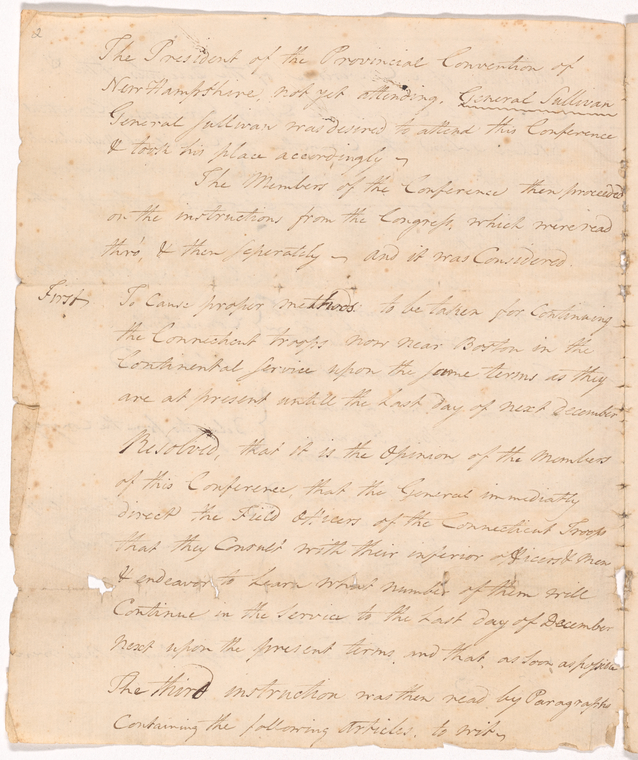 2
The President of the Provincial Convention of
New Hampshire, not yet attending. General Sullivan
General Sullivan was desired to attend this Conference
& took his place accordingly
The Members of the Conference then proceeded
on the instructions from the Congress, which were read
thro', & then seperately and it was Considered
First To Cause proper methods to be taken for Continuing
the Connecticut troops now near Boston in the
Continental Service upon the same terms as they
are at present untill the Last Day of next December
Resolved, that it is the Opinion of the Members
of this Conference, that the General immediately
direct the Field Officers of the Connecticut Troops
that they Consult with their inferior officers & men
& endeavor to Learn what number of them will
Continue in the Service to the Last day of December
next upon the present terms, and that, as soon as possible
The third instruction was then read by Paragraphs
Containing the following Articles. to wit,